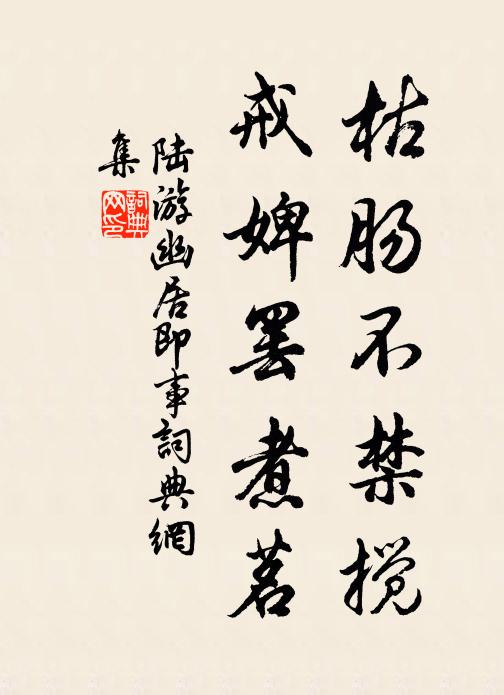 枯肠不禁搅
戒婢罢煮茗
陆游幽居即事詞典網
集
詞典
网印